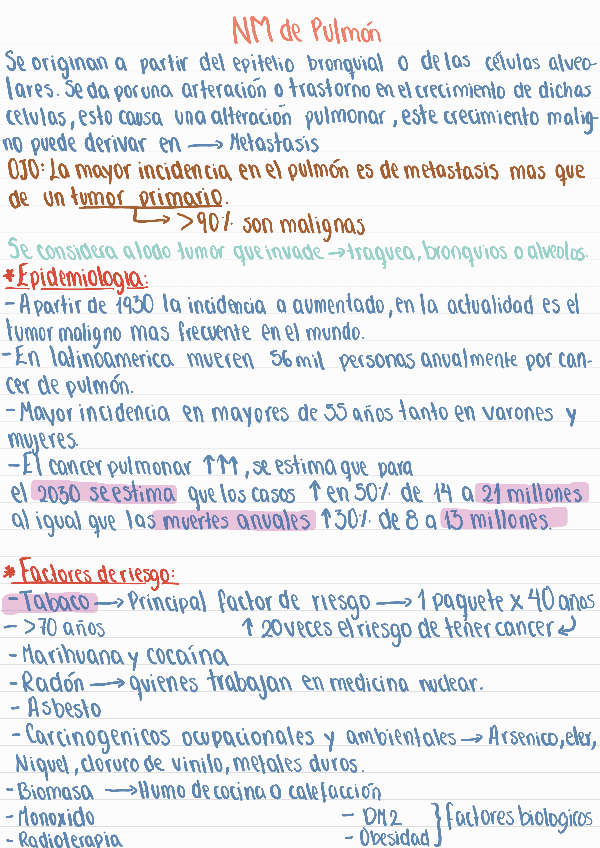 NM de Pulmón
Se originan a partir del epitelio bronquial o de las células alveo-
lares. Se da por una arteración o trastorno en el crecimiento de dichas
celulas, esto causa una alteración pulmonar, este crecimiento malig-
no puede derivar en → Metastasis
OJO: La mayor incidencia en el pulmón es de metastasis mas que
de un tumor primario.
↳ >90% son malignas
Se considera a todo tumor que invade → traquea, bronquios o alveolos.
* Epidemiologia:
- A partir de 1930 la incidencia a aumentado, en la actualidad es el
tumor maligno mas frecuente en el mundo.
- En latinoamerica mueren 56 mil personas anualmente por can-
cer de pulmón.
- Mayor incidencia en mayores de 55 años tanto en varones y
mujeres.
- El cancer pulmonar ↑↑↑, se estima que para
el 2030 se estima que los casos ↑ en 50% de 14 a 21 millones
al igual que las muertes anuales ↑30% de 8 a 13 millones.
* Factores de riesgo:
- Tabaco → Principal factor de riesgo → 1 paquete x 40 años
- >70 años ↑ 20 veces el riesgo de tener cancer ↵
- Marihuana y cocaína
- Radón → quienes trabajan en medicina nuclear.
- Asbesto
- Carcinogenicos ocupacionales y ambientales → Arsenico, eter,
Niquel, cloruro de vinilo, metales duros.
- Biomasa → Humo de cocina o calefacción
- Monoxido - DM2 } factores biologicos
- Radioterapia - Obesidad